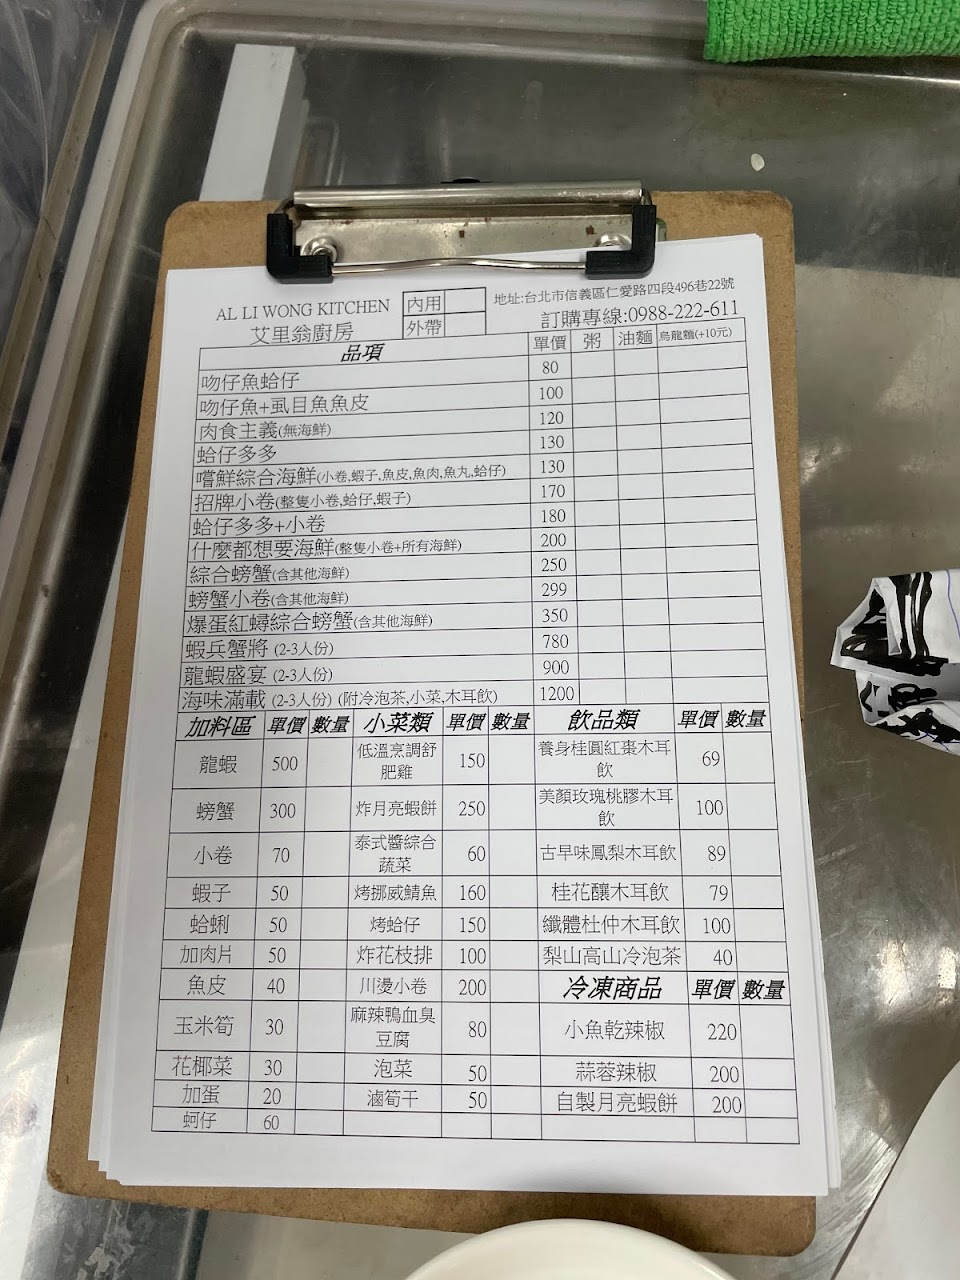 AL LI WONG KITCHEN 內用 地址:台北市信義區仁愛路四段496巷22號
艾里翁廚房 外帶 訂購專線:0988-222-611
品項 單價 粥 油麵 烏龍麵(+10元)
吻仔魚蛤仔 80
吻仔魚+虱目魚魚皮 100
肉食主義(無海鮮) 120
蛤仔多多 130
嚐鮮綜合海鮮(小卷,蝦子,魚皮,魚肉,魚丸,蛤仔) 130
招牌小卷(整隻小卷,蛤仔,蝦子) 170
蛤仔多多+小卷 180
什麼都想要海鮮(整隻小卷+所有海鮮) 200
綜合螃蟹(含其他海鮮) 250
螃蟹小卷(含其他海鮮) 299
爆蛋紅蟳綜合螃蟹(含其他海鮮) 350
蝦兵蟹將 (2-3人份) 780
龍蝦盛宴 (2-3人份) 900
海味滿載 (2-3人份) (附冷泡茶,小菜,木耳飲) 1200
加料區 單價 數量 小菜類 單價 數量 飲品類 單價 數量
龍蝦 500 低溫烹調舒肥雞 150 養身桂圓紅棗木耳飲 69
螃蟹 300 炸月亮蝦餅 250 美顏玫瑰桃膠木耳飲 100
小卷 70 泰式醬綜合蔬菜 60 古早味鳳梨木耳飲 89
蝦子 50 烤挪威鯖魚 160 桂花釀木耳飲 79
蛤蜊 50 烤蛤仔 150 纖體杜仲木耳飲 100
加肉片 50 炸花枝排 100 梨山高山冷泡茶 40
魚皮 40 川燙小卷 200 冷凍商品 單價 數量
玉米筍 30 麻辣鴨血臭豆腐 80 小魚乾辣椒 220
花椰菜 30 泡菜 50 蒜蓉辣椒 200
加蛋 20 滷筍干 50 自製月亮蝦餅 200
蚵仔 60